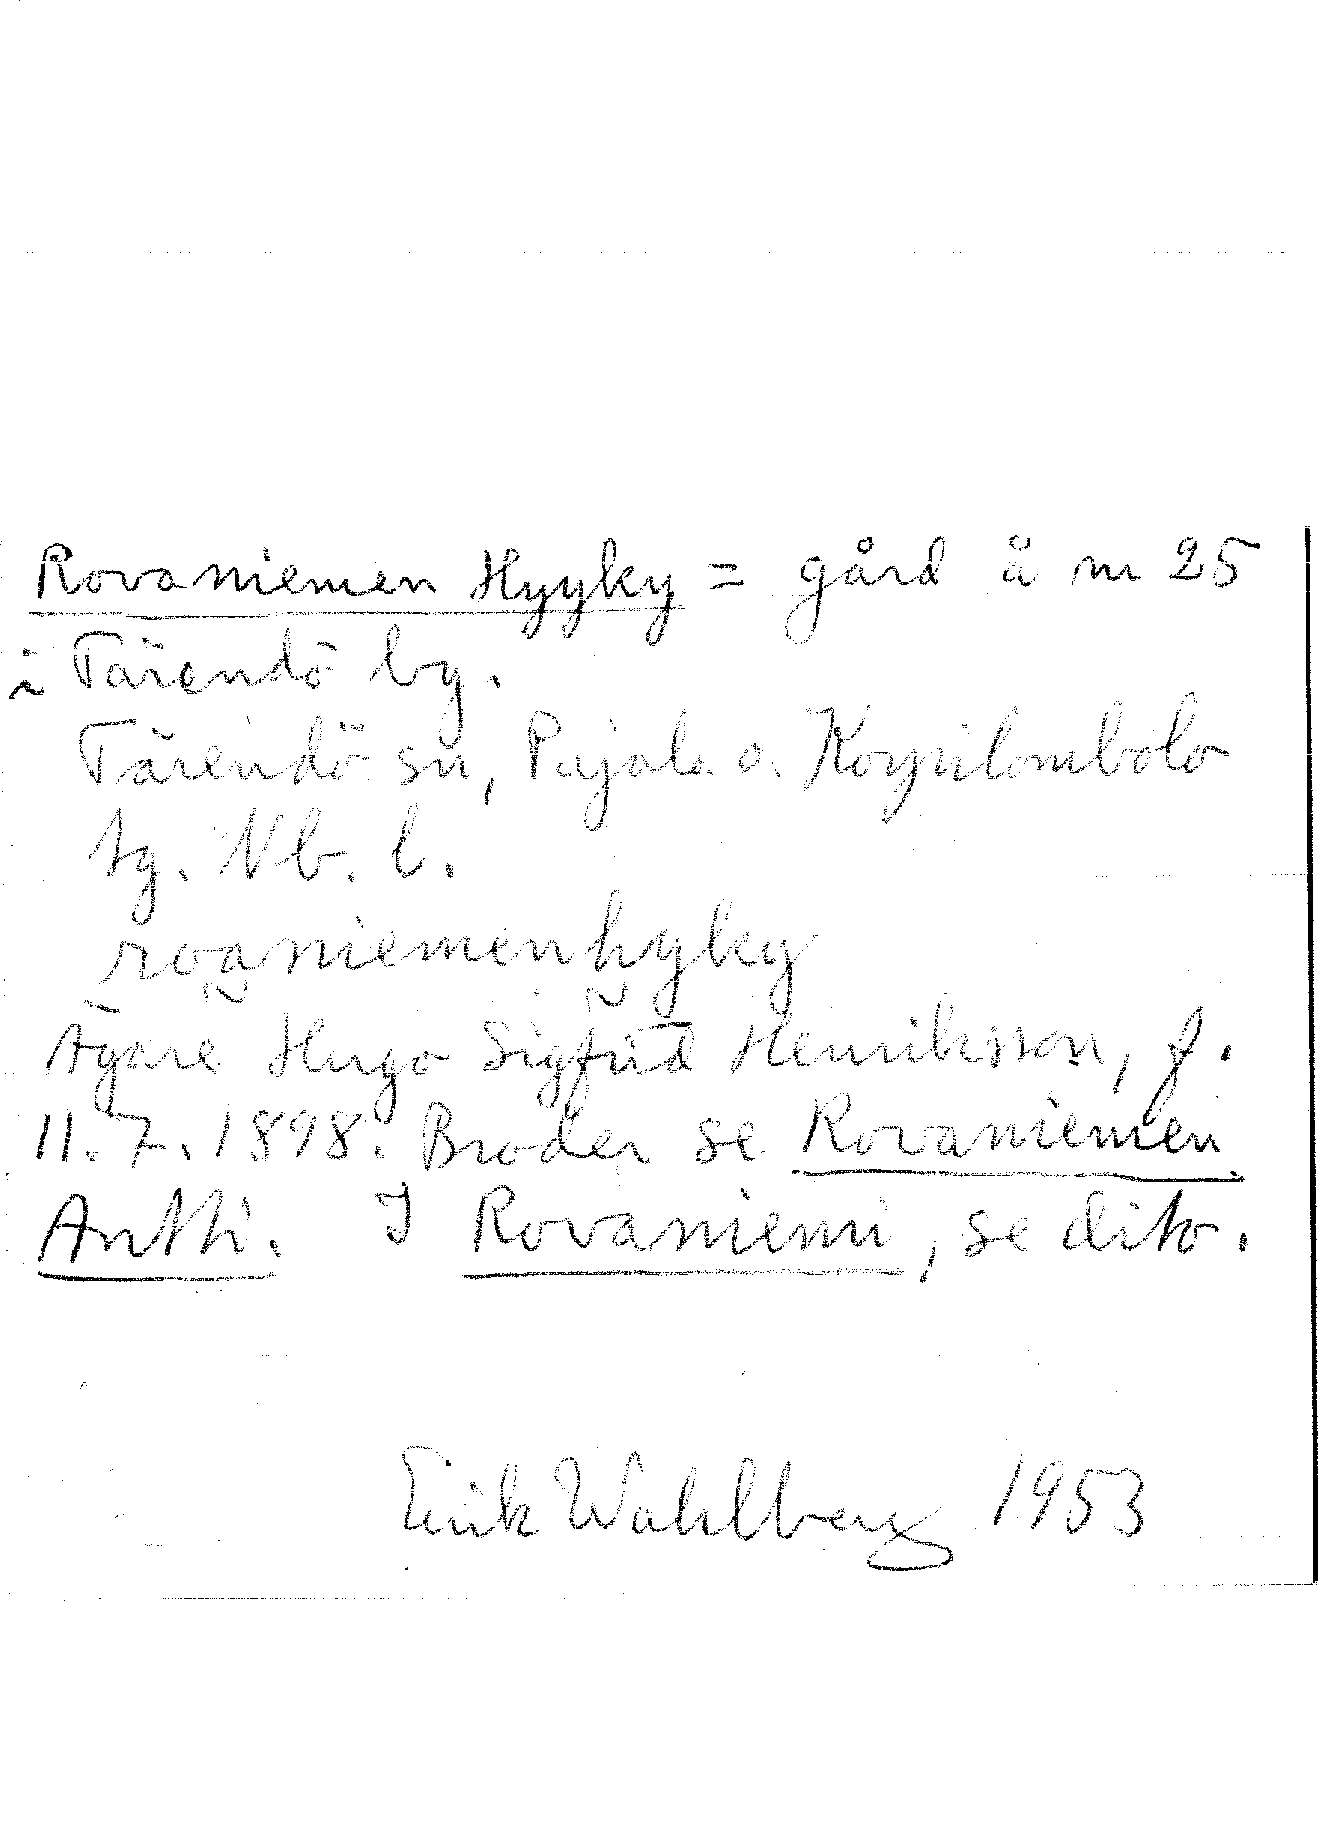 Rovaniemen Hyyky = gård å nr 25
i Tärendö by.
Tärendö sn, Pajala o. Korpilombolo
tg. Nb. l.
rovaniemenhyky
Ägare Hugo Sigfrid Henriksson, f.
11.7.1898. Broder se Rovaniemen
Antti. I Rovaniemi, se dito.
Erik Wahlberg 1953